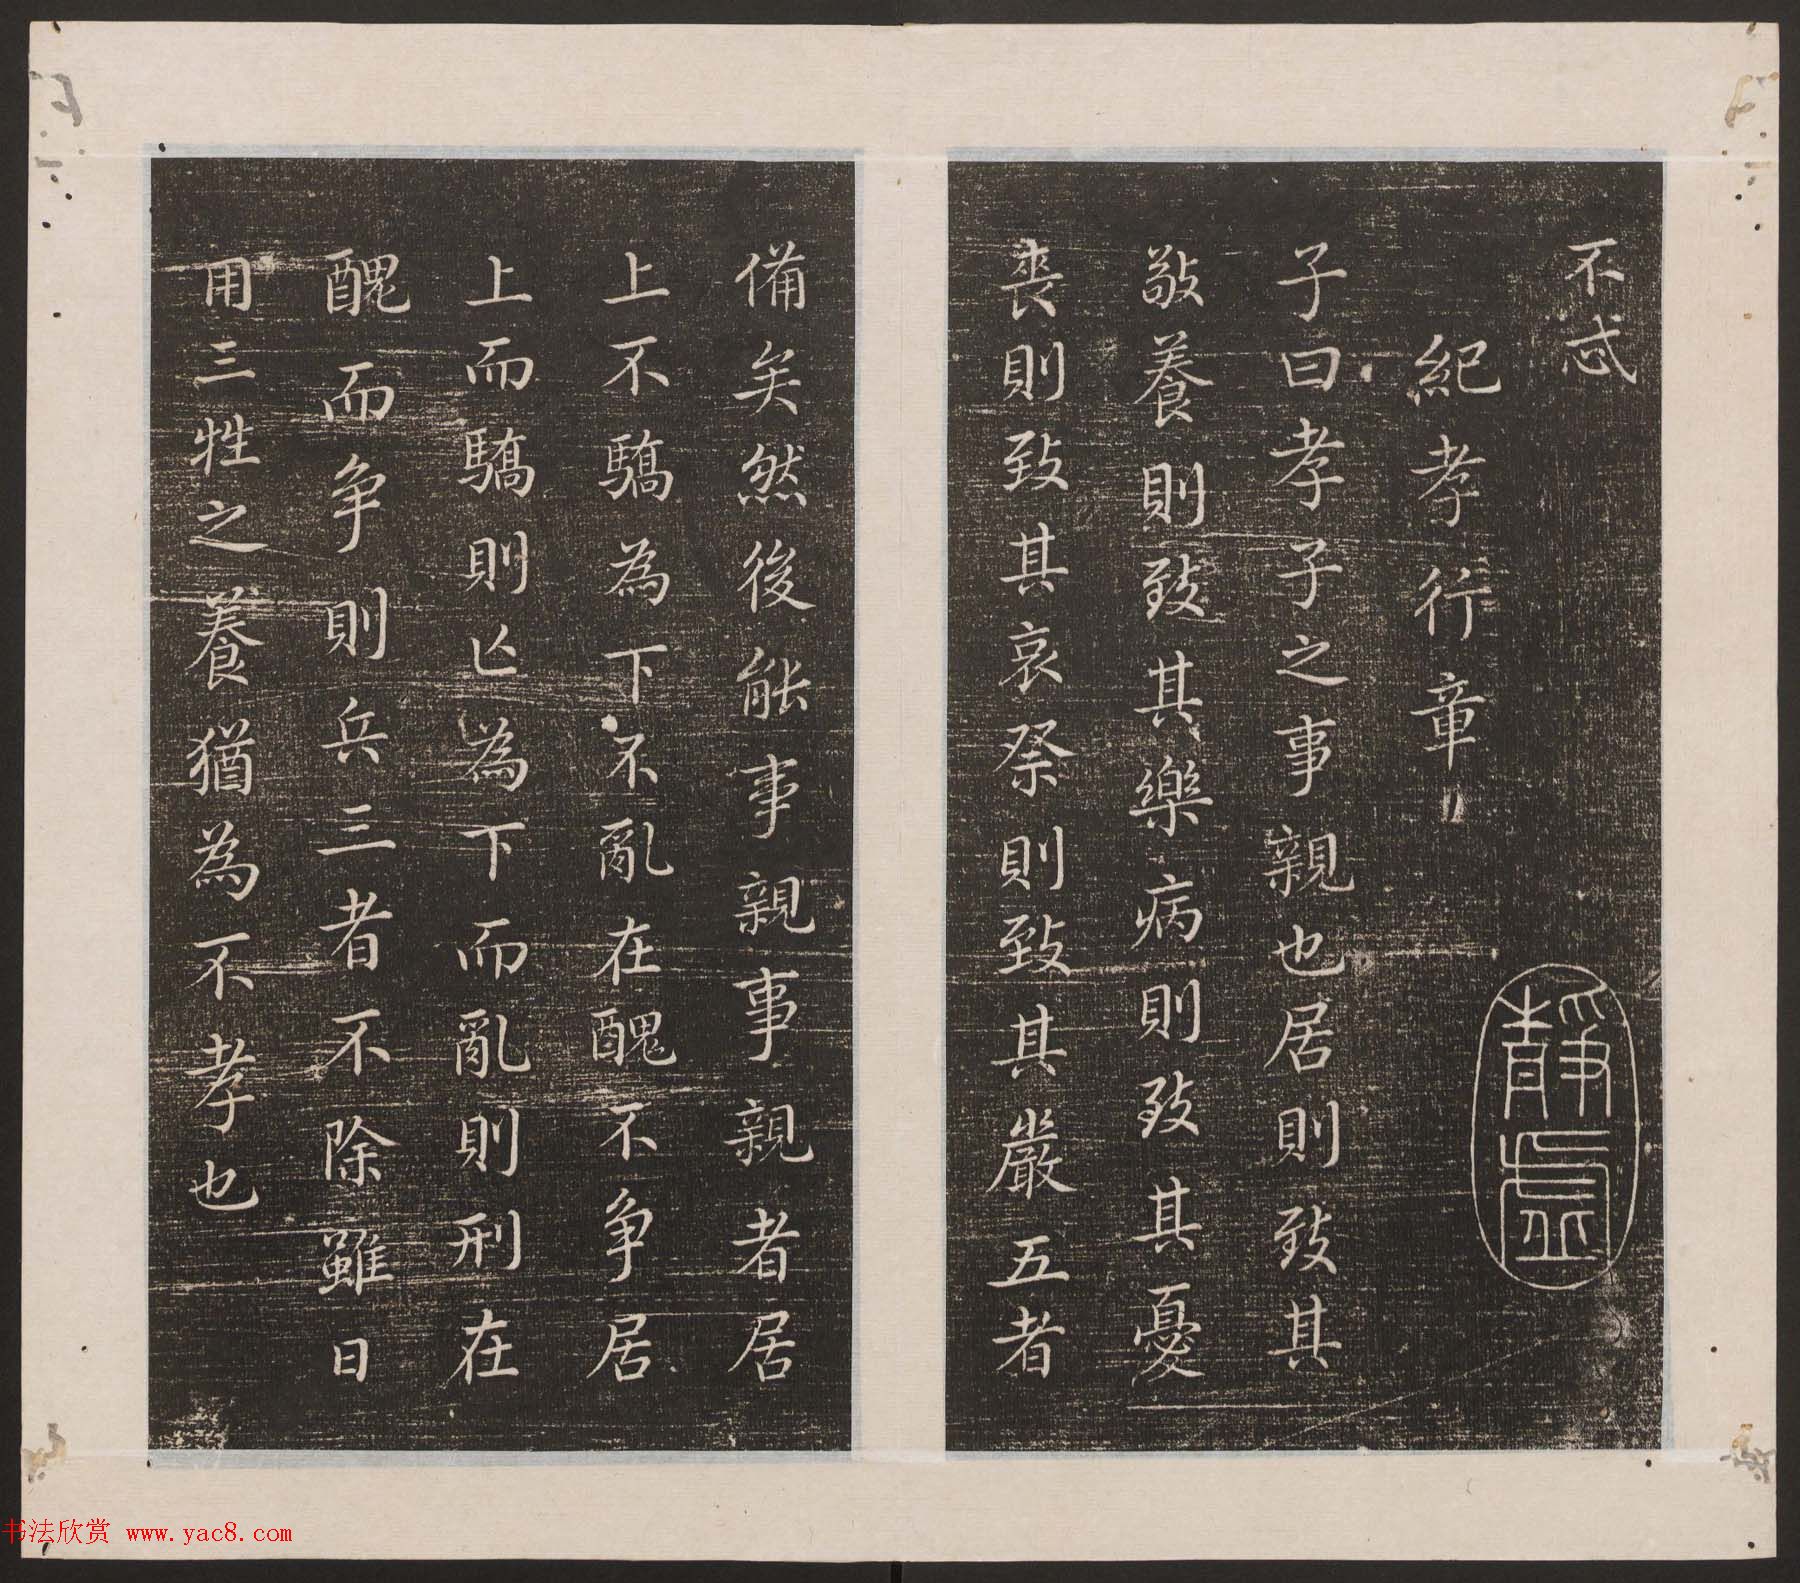 不忒
紀孝行章
子曰孝子之事親也居則致其
敬養則致其樂病則致其憂
喪則致其哀祭則致其嚴五者
備矣然後能事親事親者居
上不驕為下不亂在醜不争居
上而驕則亡為下而亂則刑在
醜而争則兵三者不除雖日
用三牲之養猶為不孝也
书法欣赏 www.yac8.com